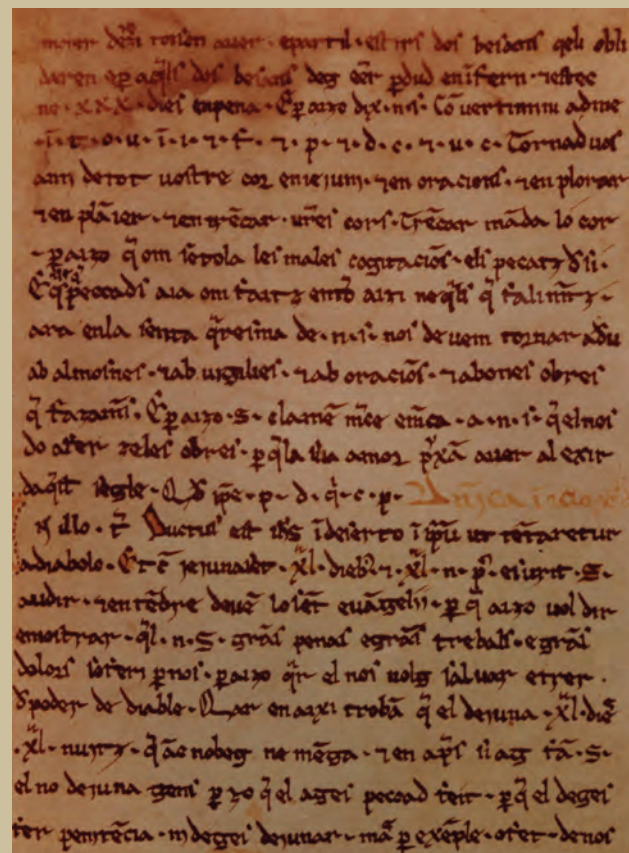 moler deuē torsen auer · epartil · est irs dos besans qeli obli
daren e ꝑ aq̄ls dos besans deg eēr ꝑdud en ifern · ⁊estec
ne · xxx · dies enpena · E ꝑ aizo dix · n · s · Cō uertimini adme
· i · t · o · u · i · i · ⁊ · f · ⁊ · p · ⁊ · d · c · ⁊ · u · c · Tornad uos
ami detot uostre cor en ieiuni · ⁊en oracions · ⁊en plorar
⁊en plāier · ⁊en trēcar · ures cors · Trēcar māda lo cor
· ꝑ aizo q̄ om se tola les males cogitaciōs · els pecatz ď si ·
peccads aia om faitz entō aizi
ara enla senta q̄resma de · n · s · nos deuem tornar a du
ab almosnes · ⁊ab uigilies · ⁊ab oraciōs · ⁊abones obres
q̄ fazam · E ꝑ aizo · S · clamē m̄ce · a · n · s · q̄elnos
do afer zeles obres · ꝑ q̄la sua amor auer al exir
daq̄st segle · Q ď ipse · p · d · q̄ · c · p · Dn̄ica
N illo · t̄ Ductus est ihs i deserto i sp̄u ut tētaretur
adiabolo · Et c̄ ieiunaset · xl · dieb⁊ · ⁊ · xl · n · p · esurit · S ·
audir · ⁊entēdre deuē lo sēt euāgelii · ꝑ q̄ aizo uol dir
emostrar · q̄l · n · S · grās penas e grās trebals · e grās
dolors soferi ꝑ nos · ꝑ aizo q̄r el nos uolg saluar etrer
ď poder de diable · Quar en aixi trobā q̄ el dejuna · xl · diē
· xl · nuitz · q̄ āc nobeg ne mēga · ⁊en ap̄s si ag fā · S ·
el no dejuna gens ꝑ zo q̄ el ages peccad feit · ꝑ q̄ el deges
fer penitēcia · ni deges dejunar · ma ꝑ exēple · ofet · denos